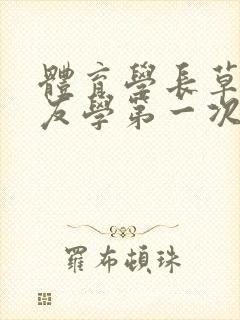 體育學長草
友學第一次
羅布頓珠